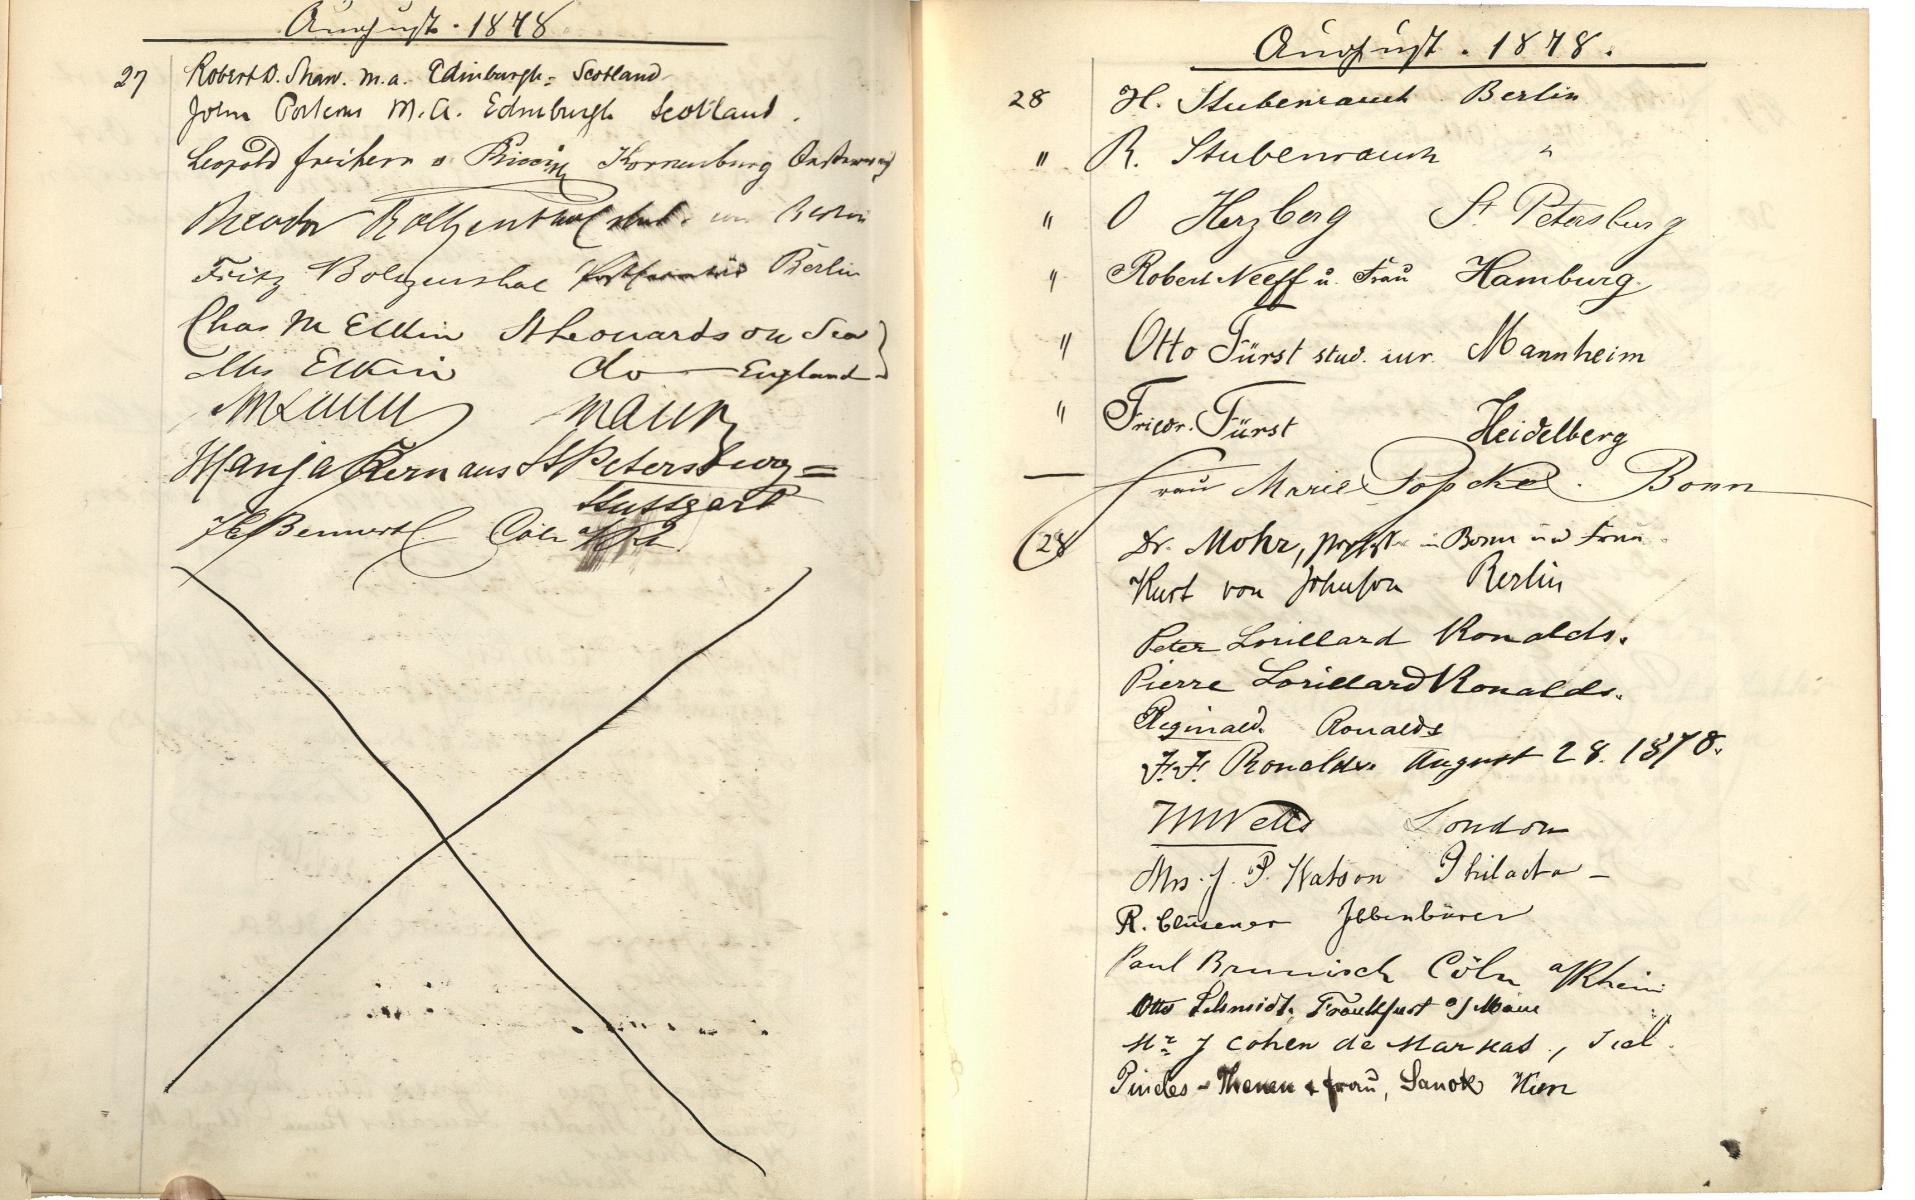 August. 1878
27 Robert D. Shaw. M.A. Edinburgh. Scotland
John Porteous M.A. Edinburgh Scotland.
Leopold Freiherr v. Korneuburg
Theodor Bolzenthal stud. Berlin
Fritz Bolzenthal Berlin
Chas M Elkin St Leonards on Sea
Mrs Elkin do England
Manja Kern aus St Petersburg =
Stuttgart
Bennert Cöln a/Rh.
August. 1878.
28 H. Stubenrauch Berlin
" R. Stubenrauch "
" O Herzberg St. Petersburg
" Robert Neeff u. Frau Hamburg.
" Otto Fürst stud. iur. Mannheim
" Friedr. Fürst Heidelberg
Frau Marie Bonn
28 Dr. Mohr, in Bonn und Frau
Kurt von Johnson Berlin
Peter Lorillard Ronalds.
Pierre Lorillard Ronalds.
Reginald Ronalds
F. F. Ronalds. August 28. 1878.
Wells London
Mrs. J. P. Watson Philada -
R. Clüsener Ibbenbüren
Paul Cöln a/Rhein
Otto Schmidt, Frankfurt a/Main
Mr J Cohen de Markas, Tiel.
Pindes - Thenen & Frau, Sanok Wien